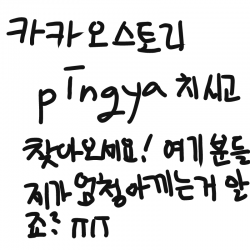 카카오스토리
pīngya 치시고
찾다오세요! 여기분들
찌가엄청아끼는거 알
죠? ㅠㅠ